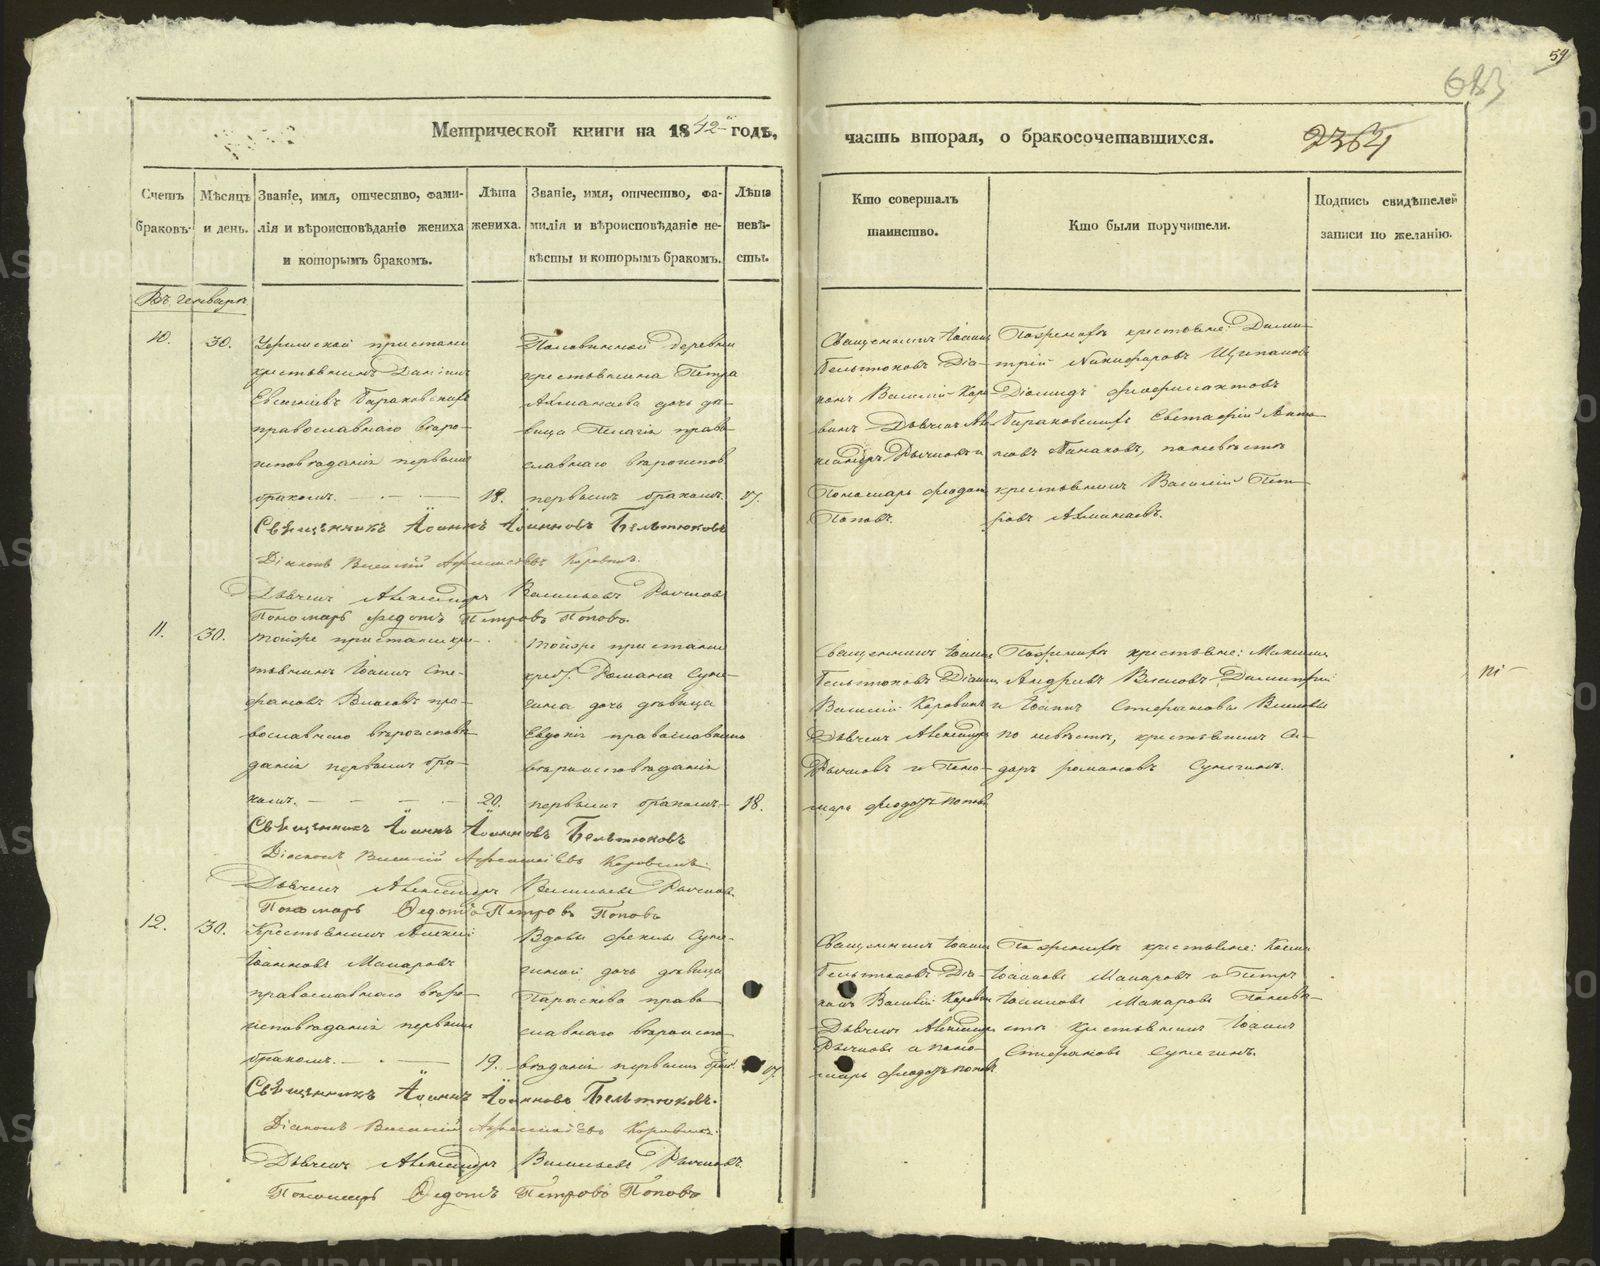 59
683
Метрической книги на 1842й годъ,
часть вторая, о бракосочетавшихся.
2364
Счетъ браковъ.
Мѣсяцъ и день.
Званіе, имя, отчество, фами-
лія и вѣроисповѣданіе жениха
и которымъ бракомъ.
Лѣта
жениха.
Званіе, имя, отчество, фа-
милія и вѣроисповѣданіе не-
вѣсты и которымъ бракомъ.
Лѣта
невѣ-
сты.
Кто совершалъ
таинство.
Кто были поручители.
Подпись свидѣтелей
записи по желанію.
Въ генварѣ
10.
30.
пристани
крестьянинъ
православнаго вѣро-
исповѣданія первымъ
бракомъ. 18.
Половинной деревни
крестьянина Петра
дочь дѣ-
вица Пелагія право-
славнаго вѣроиспов.
первымъ бракомъ. 17.
Священникъ Іоаннъ
Бельтюковъ Діа-
конъ Василій Коро-
винъ Дьячекъ Але-
ксандръ Рычковъ и
Пономарь Ѳедотъ
Поповъ.
По женихѣ крестьяне: Дими-
трій Никифоровъ
Діомидъ
Евстафій
по невѣстѣ
крестьянинъ Василій Пет-
ровъ
Священникъ Іоаннъ Іоанновъ Бельтюковъ
Діаконъ Василій Коровинъ.
Дьячекъ Александръ Васильевъ Рычковъ
Пономарь Ѳедотъ Петровъ Поповъ.
11.
30.
Тойже пристани кре-
стьянинъ Іоаннъ Сте-
фановъ Власовъ пра-
вославнаго вѣроисповѣ-
данія первымъ бра-
комъ. 20.
Тойже пристани
крест. Романа Суне-
гина дочь дѣвица
Евдокія православнаго
вѣроисповѣданія
первымъ бракомъ. 18.
Священникъ Іоаннъ
Бельтюковъ Діаконъ
Василій Коровинъ
Дьячекъ Александръ
Рычковъ и Поно-
марь Ѳедотъ Поповъ
По женихѣ крестьяне: Максимъ
Андреевъ Власовъ Димитрій
и Іоаннъ Стефановы Власовы
по невѣстѣ, крестьянинъ Си-
доръ Романовъ Сунегинъ.
Священникъ Іоаннъ Іоанновъ Бельтюковъ
Діаконъ Василій Коровинъ.
Дьячекъ Александръ Васильевъ Рычковъ
Пономарь Ѳедотъ Петровъ Поповъ
12.
30.
Крестьянинъ Алексій
Іоанновъ Макаровъ
православнаго вѣро-
исповѣданія первымъ
бракомъ. 19.
Вдовы Ѳеклы Суне-
гиной дочь дѣвица
Параскева право-
славнаго вѣроиспо-
вѣданія первымъ брак. 17.
Священникъ Іоаннъ
Бельтюковъ Діа-
конъ Василій Коровинъ
Дьячекъ Александръ
Рычковъ и Поно-
марь Ѳедотъ Поповъ
По женихѣ крестьяне: Косма
Іоанновъ Макаровъ и Петръ
Макаровъ По невѣ-
стѣ крестьянинъ Іоаннъ
Стефановъ Сунегинъ.
Священникъ Іоаннъ Іоанновъ Бельтюковъ.
Діаконъ Василій Коровинъ.
Дьячекъ Александръ Васильевъ Рычковъ.
Пономарь Ѳедотъ Петровъ Поповъ
METRIKI.GASO-URAL.RU